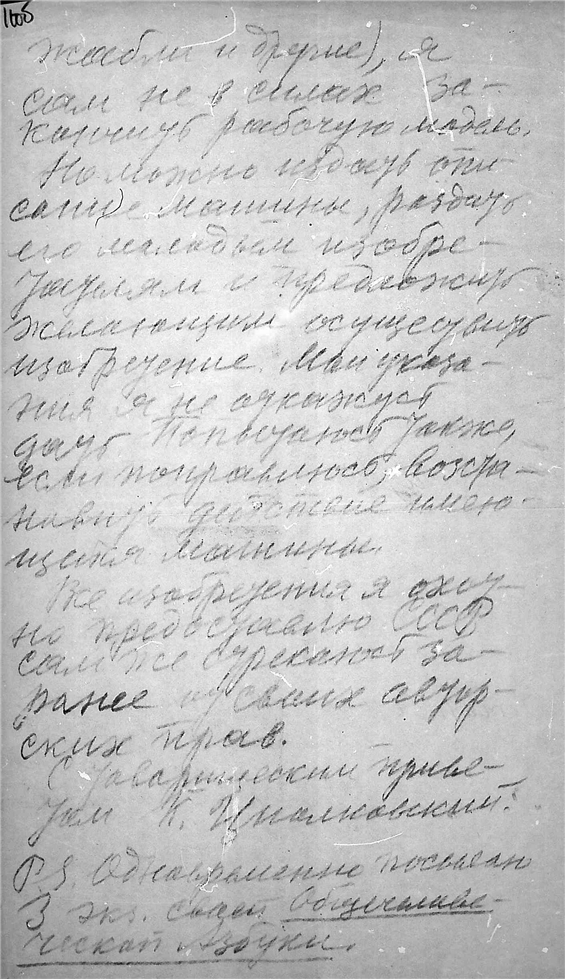 жабли и другие), я
сам не в силах за-
кончить рабочую модель.
Но можно издать опи-
сание машины, раздать
его молодым изобре-
тателям и предложить
желающим осуществить
изобретение. Мои указа-
ния я не откажусь
дать. Попытаюсь также,
если поправлюсь, возста-
новить действие имею-
щейся машины.
Все изобретения я охот-
но предоставлю СССР
сам же отрекаюсь за-
ранее от своих автор-
ских прав.
С товарищеским приве-
том К. Циолковский.
P.S. Одновременно посылаю
3 экз. своей Общечелове-
ческой Азбуки.